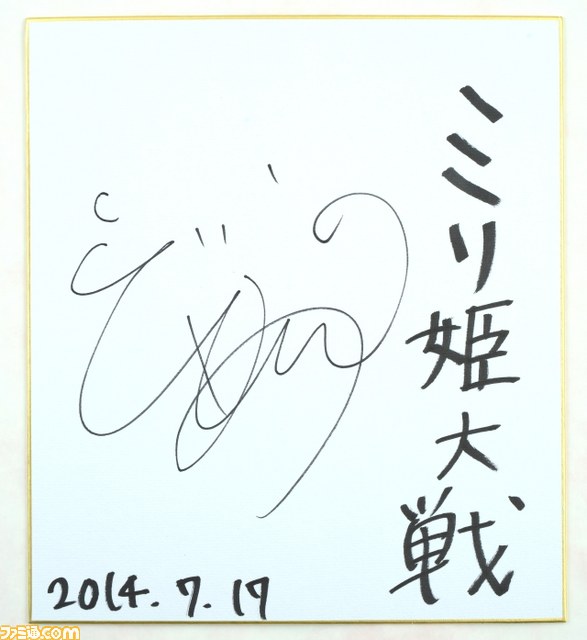 ミリ姫大戦
2014.7.17
ファミ通.com